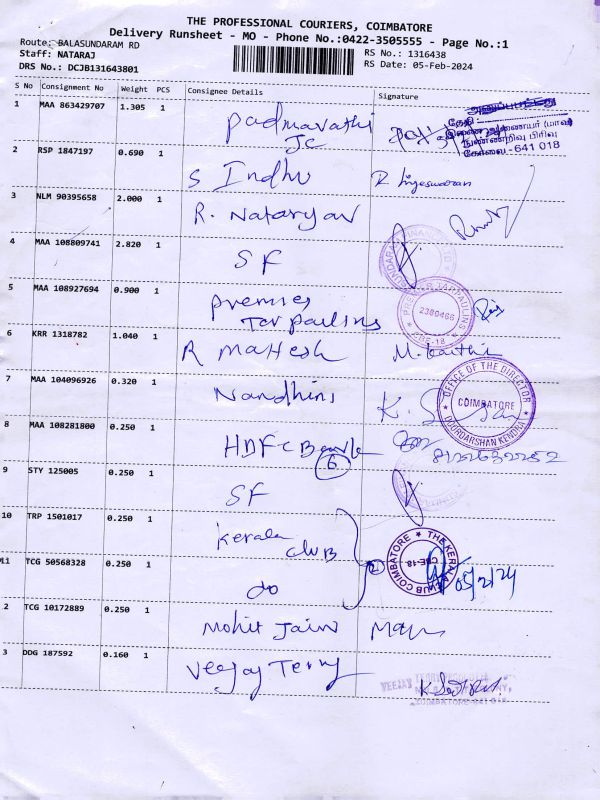 THE PROFESSIONAL COURIERS, COIMBATORE
Delivery Runsheet - MO - Phone No.:0422-3505555 - Page No.:1
Route: BALASUNDARAM RD
Staff: NATARAJ
DRS No.: DCJB131643801
RS No.: 1316438
RS Date: 05-Feb-2024
S No Consignment No Weight PCS Consignee Details Signature
1 MAA 863429707 1.305 1 Padmavathi
JC
தேதி
இணை ஆணையர் (மாவ
நுண்ணறிவு பிரிவு
கோவை - 641 018
2 RSP 1847197 0.690 1 S Indhu
3 NLM 90395658 2.000 1 R. Natarajan
4 MAA 108809741 2.820 1 SF
5 MAA 108927694 0.900 1 Premier
Tarpaulins
2380466
CBE-18
6 KRR 1318782 1.040 1 R Mahesh
7 MAA 104096926 0.320 1 Nandhini
OFFICE OF THE DIRECTOR
COIMBATORE
DOORDARSHAN KENDRA
8 MAA 108281800 0.250 1 HDFC Bank
6
9 STY 125005 0.250 1 SF
10 TRP 1501017 0.250 1 Kerala
club
THE KERALA CLUB COIMBATORE
CBE-18
05/2/24
11 TCG 50568328 0.250 1 do
2 TCG 10172889 0.250 1 Mohit Jain
3 DDG 187592 0.160 1 Veejay Terry
VEEJAY